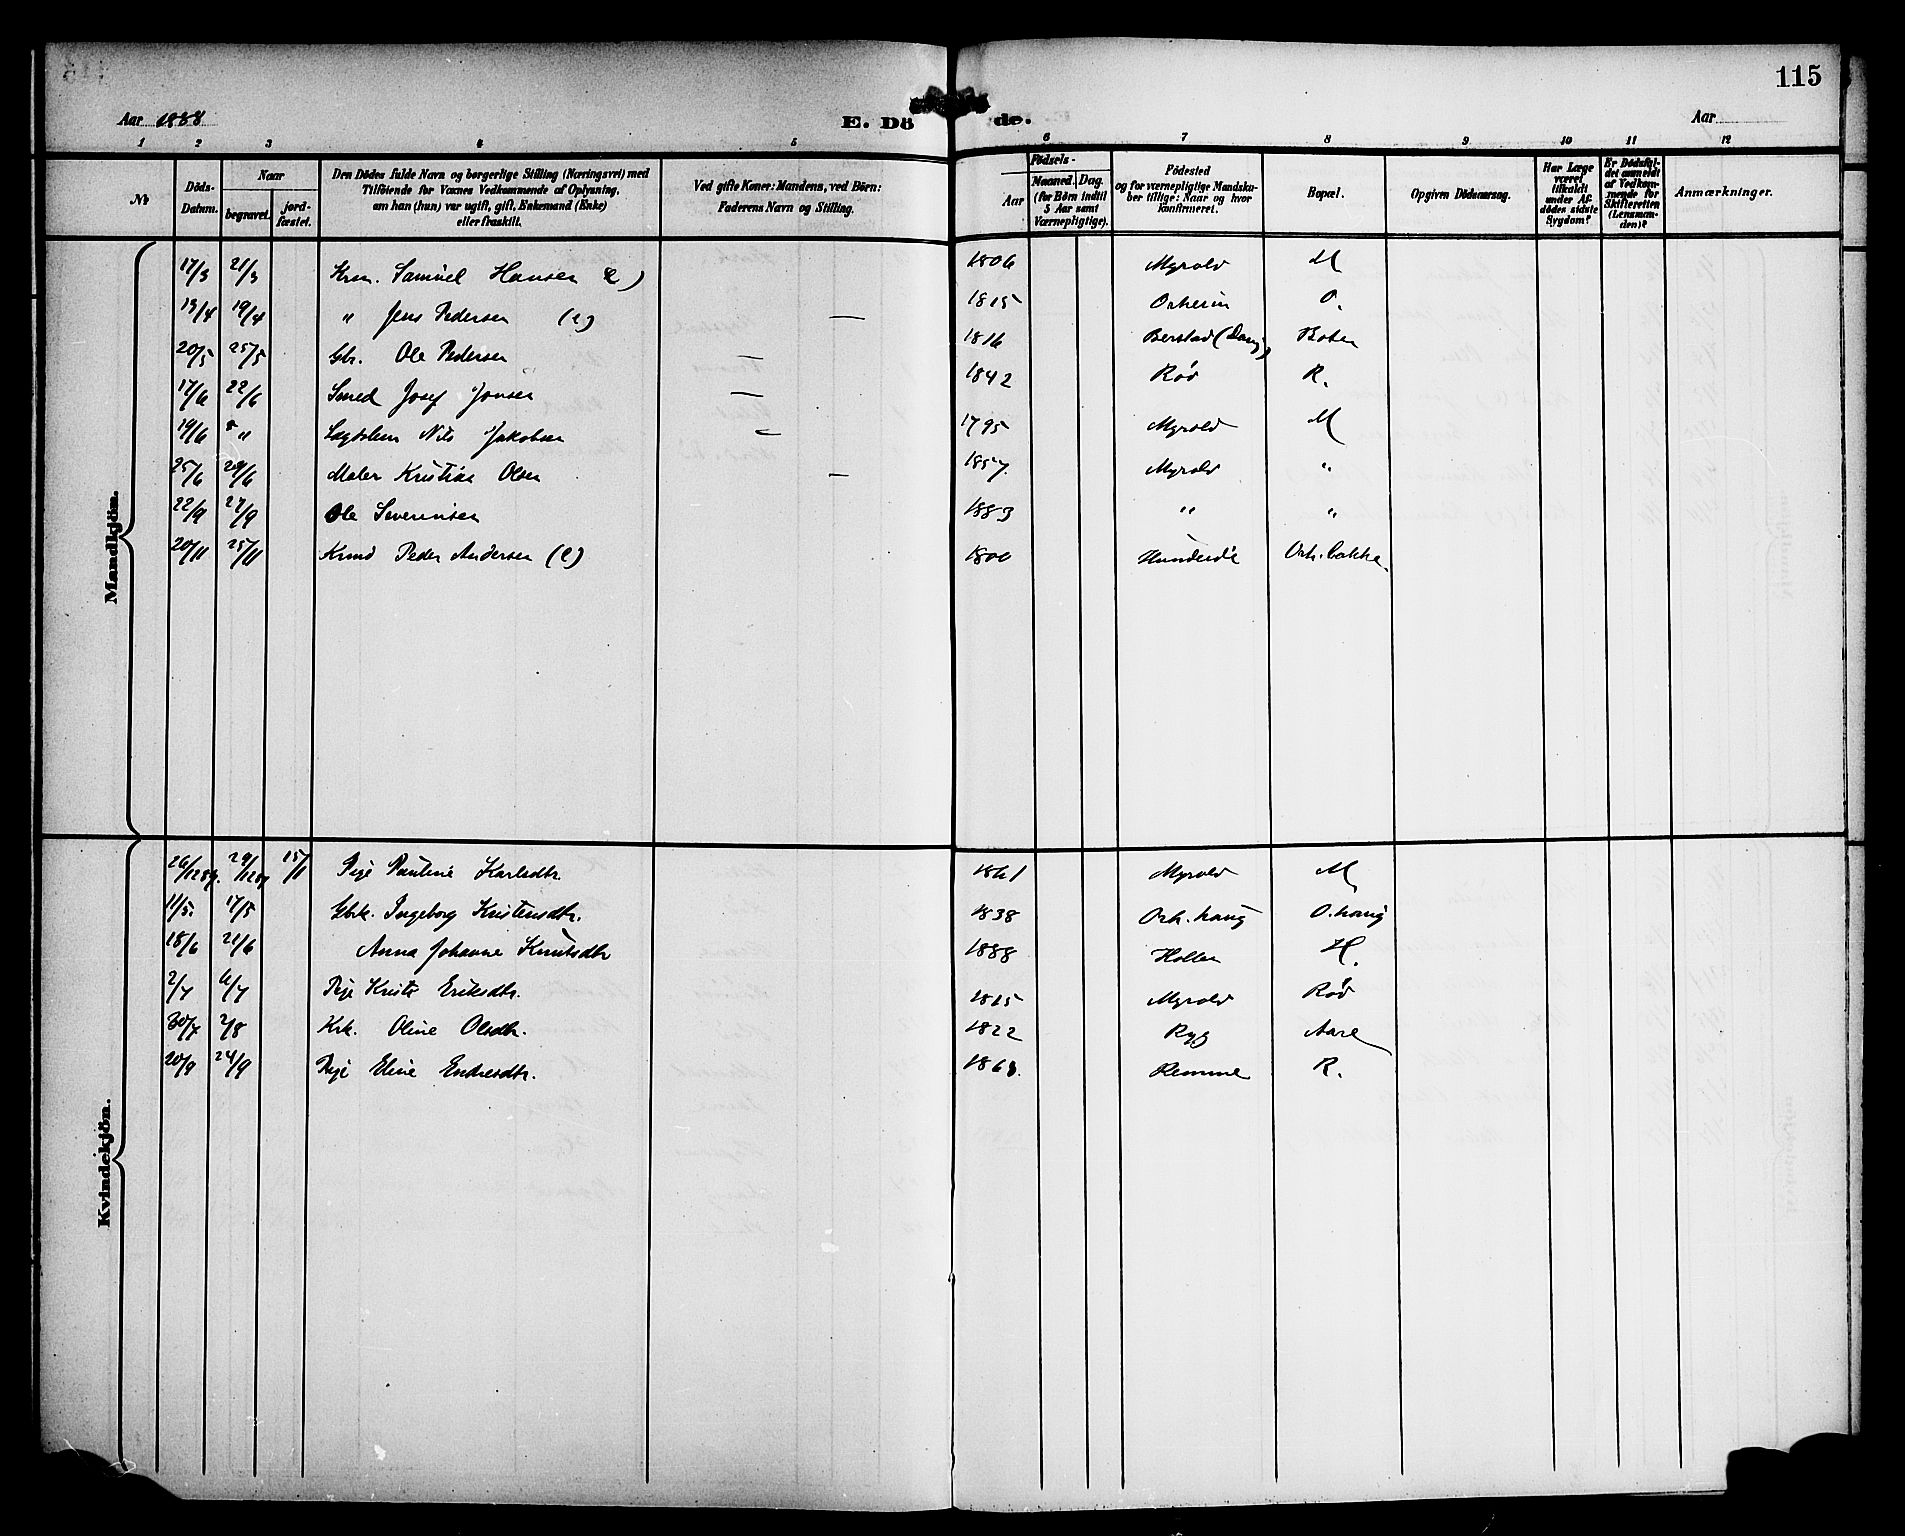 115
Aar 1888 E. Dö de. Aar
1 2 3 4 5 6 7 8 9 10 11 12
No Döds-Datum. Naar begravet. jord-fæstet. Den Dödes fulde Navn og borgerlige Stilling (Næringsvei) med Tilföiende for Voxnes Vedkommende af Oplysning, om han (hun) var ugift, gift, Enkemand (Enke) eller fraskilt. Ved gifte Koner: Mandens, ved Börn: Faderens Navn og Stilling. Födsels- Aar Maaned. Dag. (for Börn indtil 5 Aar samt Værnepligtige). Födested og for værnepligtige Mandskaber tillige: Naar og hvor konfirmeret. Bopæl. Opgiven Dödsaarsag. Har Læge været tilkaldt under Afdödes sidste Sygdom? Er Dödsfaldet anmeldt af Vedkommende for Skifteretten (Lensmanden)? Anmærkninger.
Mandkjön.
17/3 21/3 Krm. Samuel Hansen 1806 Myrold M
13/4 19/4 " Jens Pedersen (e) — 1815 Orheim O.
20/5 25/5 Gbr. Ole Pedersen — 1816 Berstad Boten
17/6 22/6 Smed Josef Jonsen — 1842 Röd R.
19/6 " Nils Jakobsen — 1795 Myrold M
25/6 29/6 Maler Kristian Olsen — 1857. Myrold "
22/9 27/9 Ole Severinsen 1883 " "
20/11 25/11 Knud Peder Andersen (e) 1800 Orh. bakke
Kvindekjön.
26/12 87. 29/12 87 15/1 Pige Pauline Karlsdtr. 1861 Myrold M
11/5. 17/5 Gbrk. Ingeborg Kristensdtr. 1838 Orh. haug O. haug
18/6 21/6 Anna Johanne Knutsdtr 1888 Hollen H.
2/7 6/7 Pige Eriksdtr. 1815 Myrold Röd
30/7 2/8 Krk. Oline Olsdtr. 1822 Ryg Aare
20/9 24/9 Pige Eline Endresdtr. 1868. Remme R.